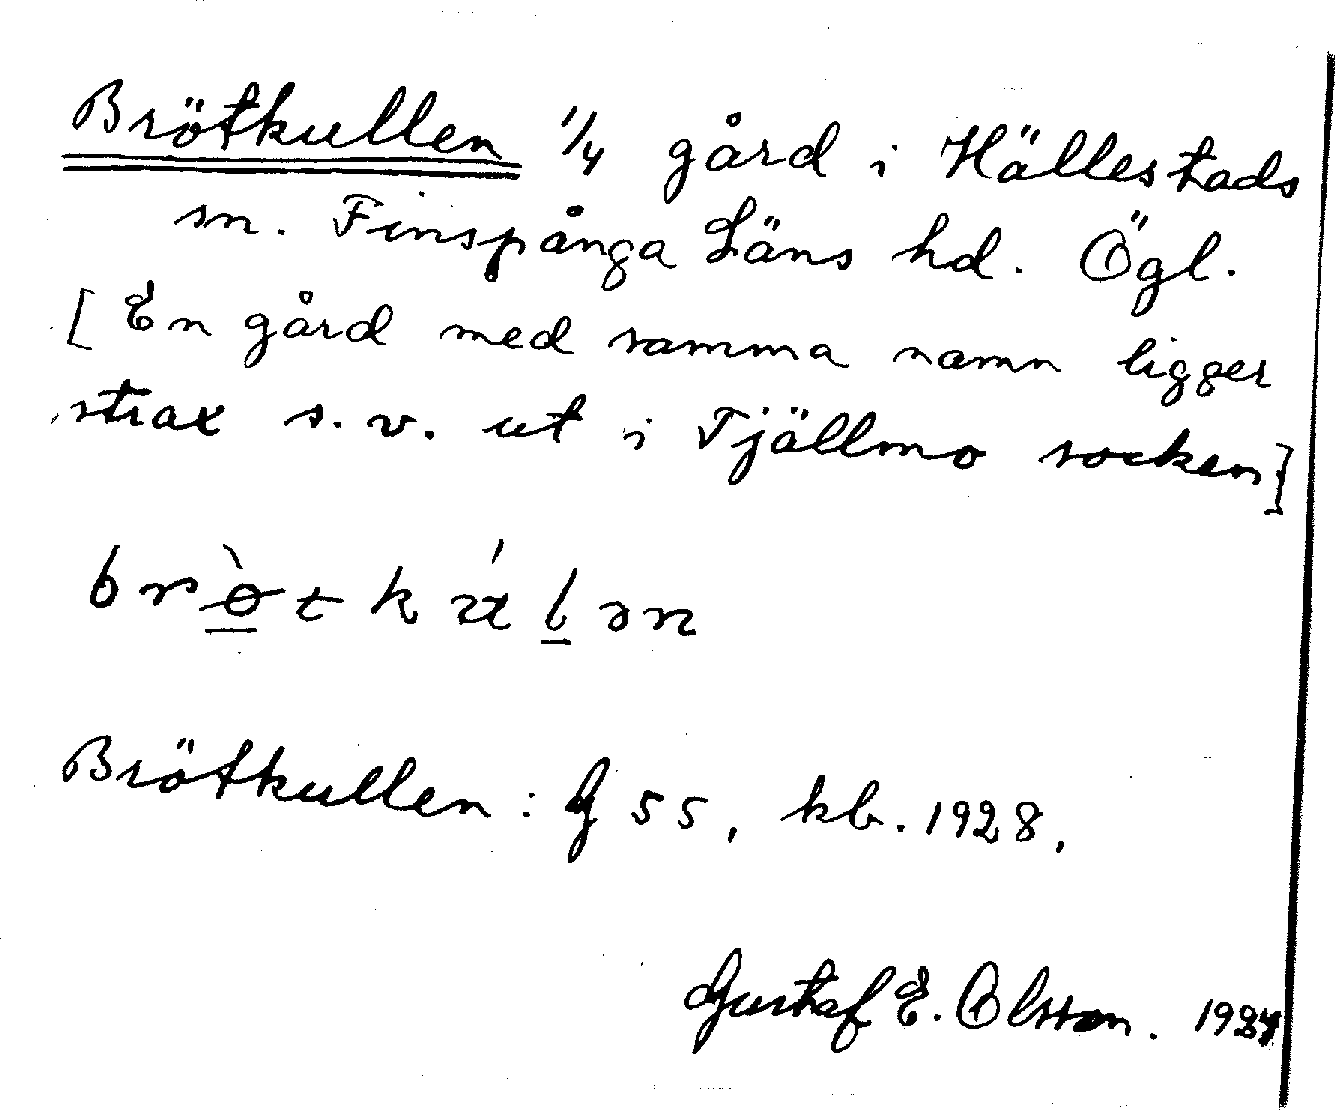 Brötkullen 1/4 gård i Hällestads
sn. Finspånga Läns hd. Ögl.
[En gård med samma namn ligger
strax s.v. ut i Tjällmo socken]
Brötkullen: G 55, kb. 1928,
Gustaf E. Olsson.